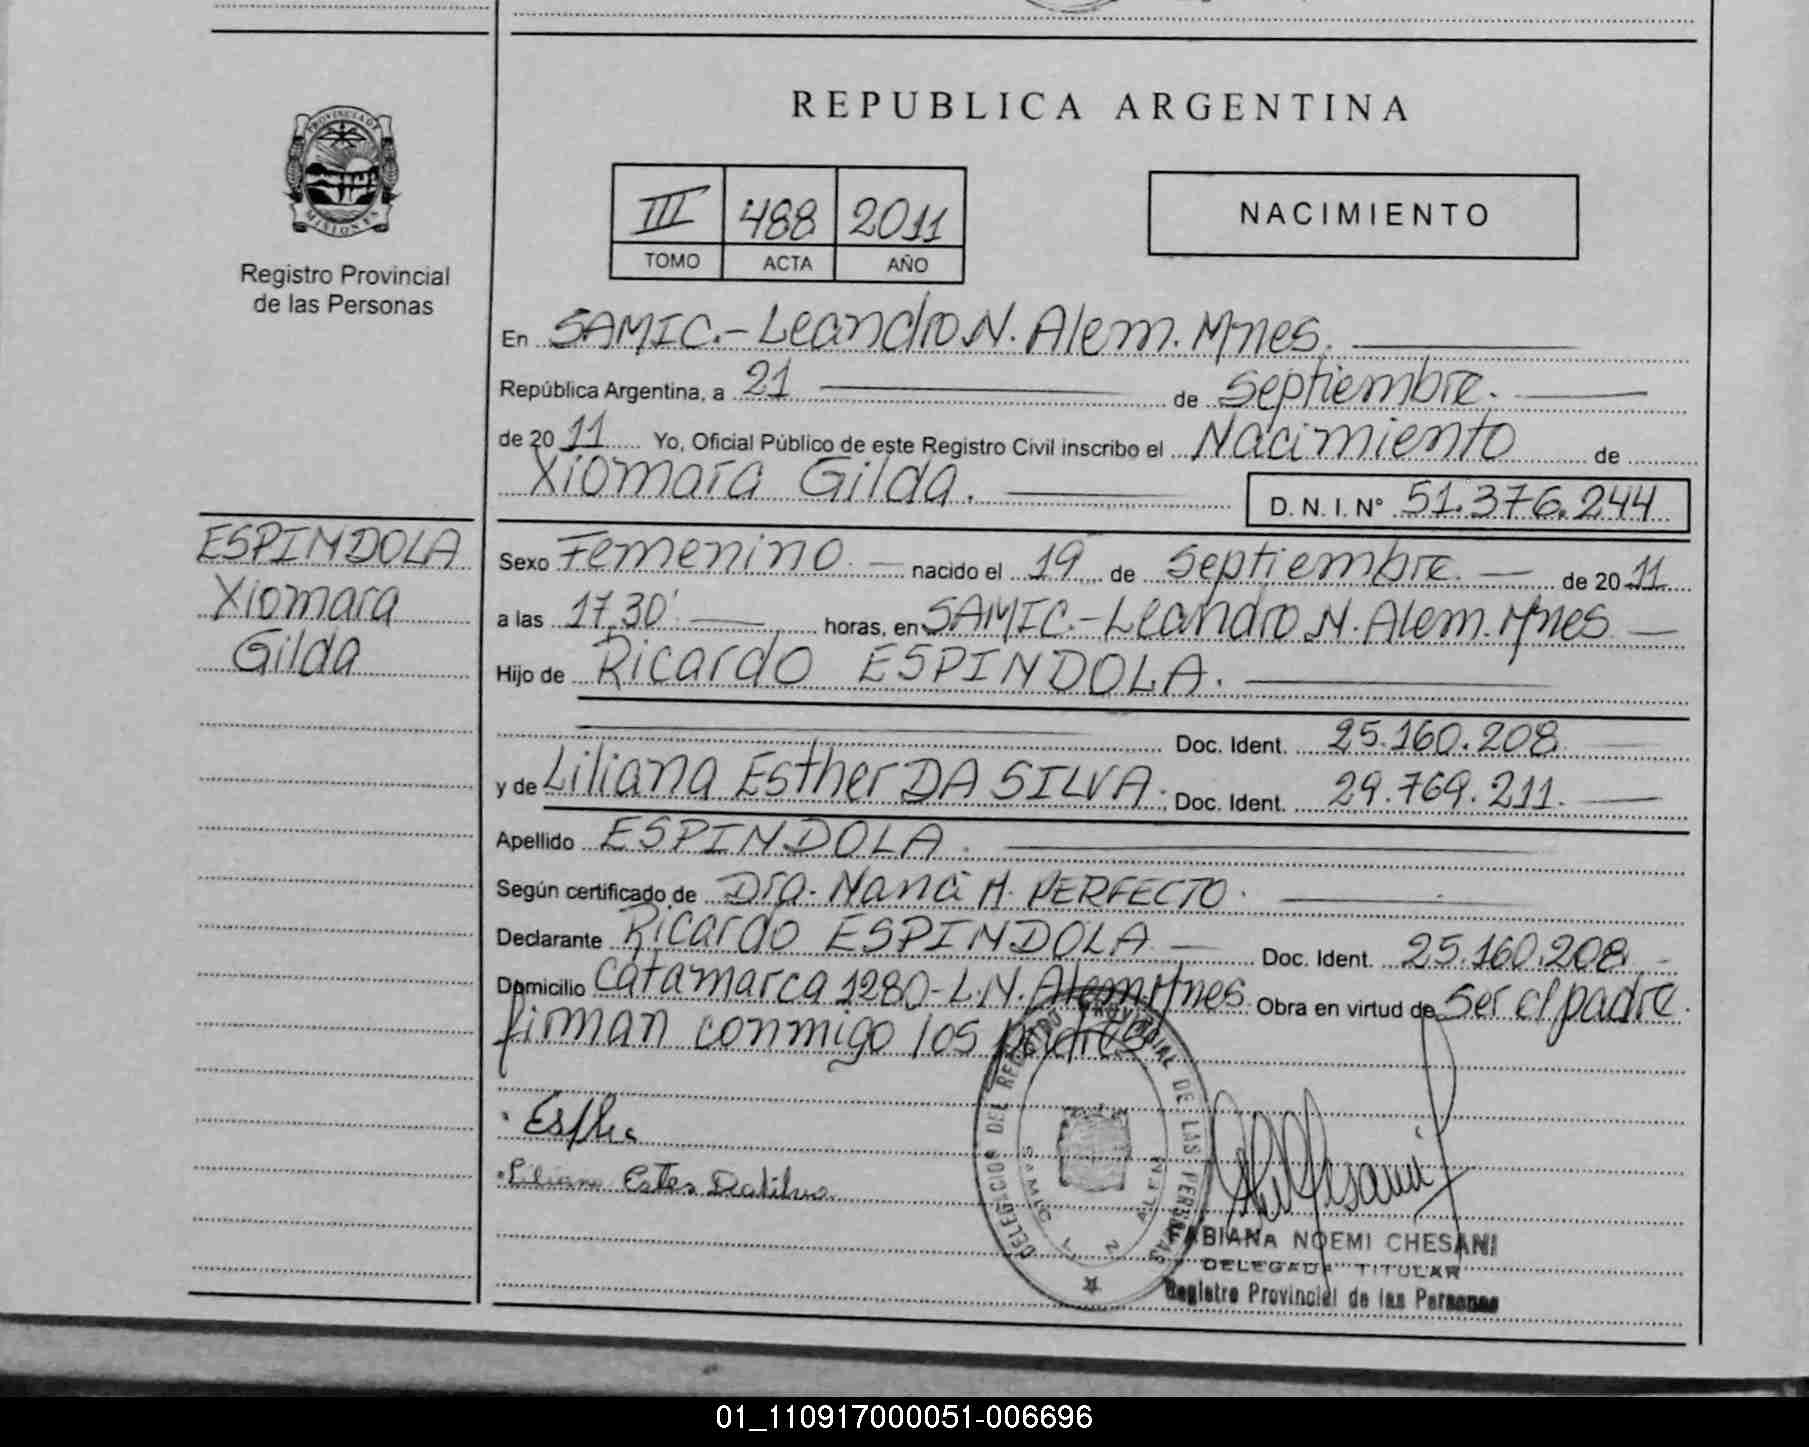 REPUBLICA ARGENTINA
PROVINCIA DE
MISIONES
Registro Provincial
de las Personas
III 488 2011
TOMO ACTA AÑO
NACIMIENTO
En SAMIC.- Leandro N. Alem. Mnes.
República Argentina, a 21 de Septiembre.
de 2011 Yo, Oficial Público de este Registro Civil inscribo el Nacimiento de
Xiomara Gilda. D. N. I. N° 51.376.244
ESPINDOLA
Xiomara
Gilda
Sexo Femenino. nacido el 19 de Septiembre. de 2011
a las 17,30' horas, en SAMIC.- Leandro N. Alem. Mnes
Hijo de Ricardo ESPINDOLA.
Doc. Ident. 25.160.208
y de Liliana Esther DA SILVA. Doc. Ident. 29.769.211.
Apellido ESPINDOLA.
Según certificado de Dra. Nanci H. PERFECTO.
Declarante Ricardo ESPINDOLA Doc. Ident. 25.160.208
Domicilio Catamarca 1280-L.N. Alem. Mnes Obra en virtud de Ser el padre.
firman conmigo los padres
DELEGACION DEL REGISTRO PROVINCIAL DE LAS PERSONAS
SAMIC L N ALEM
FABIANA NOEMI CHESANI
DELEGADA TITULAR
Registro Provincial de las Personas
01_110917000051-006696